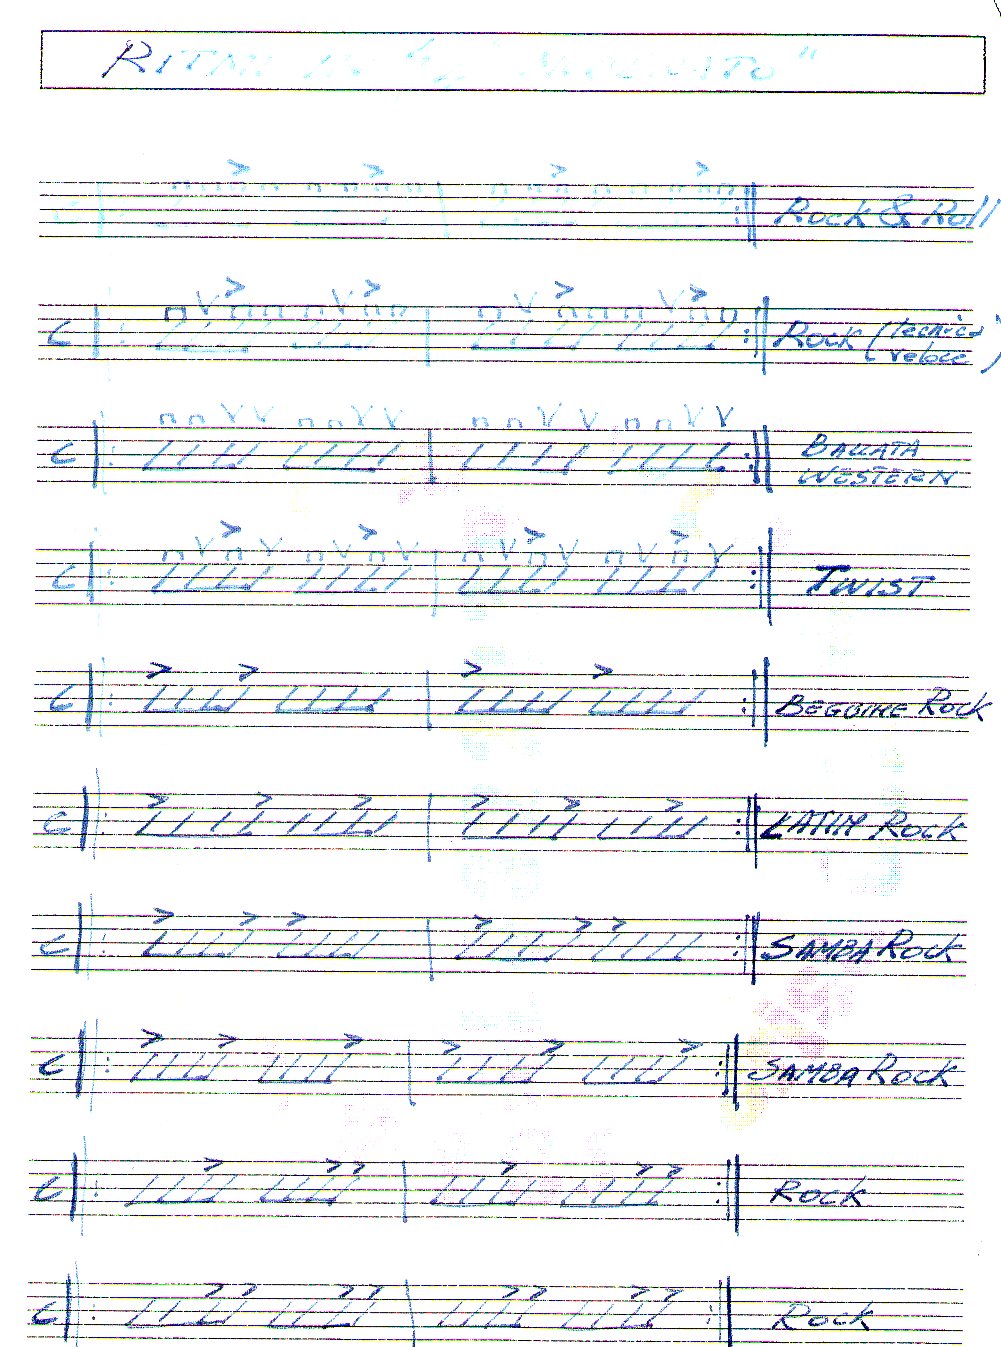 RITMI IN
Rock & Roll
C Rock (tecnica
veloce)
C BALLATA
WESTERN
C TWIST
C BEGUINE ROCK
C LATIN ROCK
C SAMBA ROCK
C SAMBA ROCK
C ROCK
C ROCK